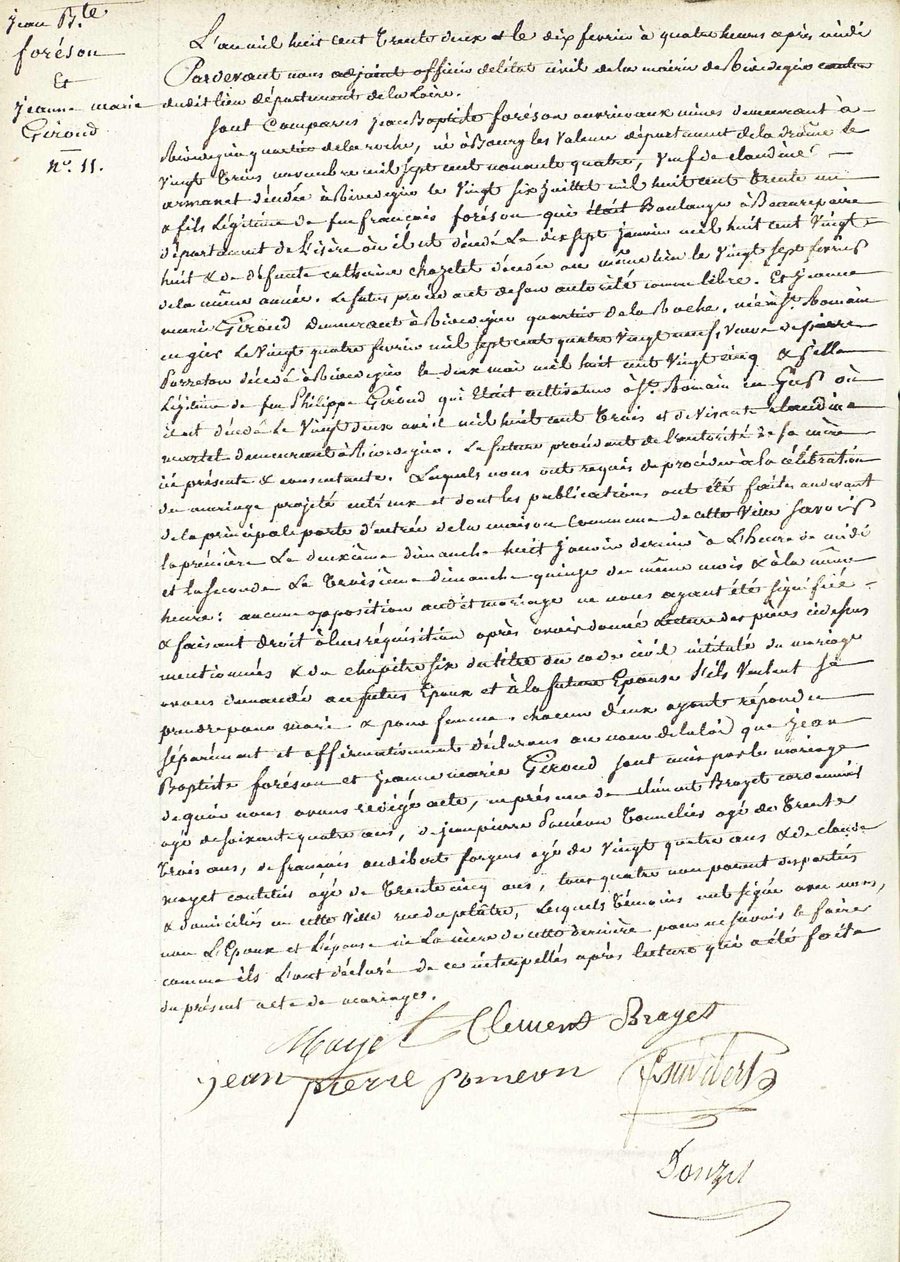 Jean Bte
foréson
Et
Jeanne marie
Giroud
No. 11.
L'an mil huit cent trente deux et le dix fevrier à quatre heures après midi
Pardevant nous adjoint officier de l'état civil de la mairie de Rivedegier canton
dudit lieu département de la Loire.
Sont comparus jean Baptiste foréson ouvrier aux mines demeurant à
Rivedegier quartier de la roche, né à Bourg les Valence département de la drôme le
Vingt trois novembre mil sept cent nonante quatre, Veuf de claudine
armanet décédée à Rivedegier le Vingt six juillet mil huit cent trente un
& fils Légitime de feu françois foréson qui était Boulanger à Beaurepaire
département de L'isère où il est décédé Le dix sept janvier mil huit cent Vingt
huit & de défunte catherine chazelet décédée au même lieu le Vingt sept fevrier
de la même année. Le futur procédant de son autorité comme libre. Et jeanne
marie Giroud demeurant à Rivedegier quartier de la Roche, née à St. Romain
en gier Le Vingt quatre fevrier mil sept cent quatre Vingt neuf, Veuve de pierre
Porreton décédé à Rivedegier le deux mai mil huit cent Vingt cinq & fille
Légitime de feu Philippe Giroud qui était cultivateur à St. Romain en Gier où
il est décédé Le Vingt deux avril mil huit cent trois et de Vivante claudine
martet demeurant à Rivedegier. La future procédant de l'autorité de sa mère
ici présente & consentante. Lesquels nous ont requis de procéder à la célébration
du mariage projeté entr'eux et dont les publications ont été faites au devant
de la principale porte d'entrée de la maison commune de cette Ville Savoir
la première Le deuxième dimanche huit janvier dernier à L'heure de midi
et la seconde Le troisième dimanche quinze du même mois & à la même
heure: aucune opposition audit mariage ne nous ayant été signifiée
& faisant droit à leur réquisition après avoir donné Lecture des pièces ci dessus
mentionnées & du chapitre six du titre du code civil intitulé du mariage
avons demandé au futur Epoux et à la future Epouse S'ils Veulent se
prendre pour mari & pour femme, chacun d'eux ayant répondu
séparément et affirmativement déclarons au nom de la loi que jean
Baptiste foréson et jeanne marie Giroud sont unis par le mariage
de quoi nous avons redigé acte, en présence de clément Brayet cordonnier
agé de soixante quatre ans, de jean pierre Poméon tonnelier agé de trente
trois ans, de françois audibert forgeur agé de Vingt quatre ans & de claude
mayet agé de trente cinq ans, tous quatre non parent des parties
& domiciliés en cette Ville rue du plâtre, Lesquels témoins ont signé avec nous,
non L'Epoux et L'épouse ni La mère de cette dernière pour ne savoir le faire
comme ils L'ont déclaré de ce interpellés après lecture qui a été faite
du présent acte de mariage.
Mayet Clement Brayet
jean pierre pomeon
Donzel